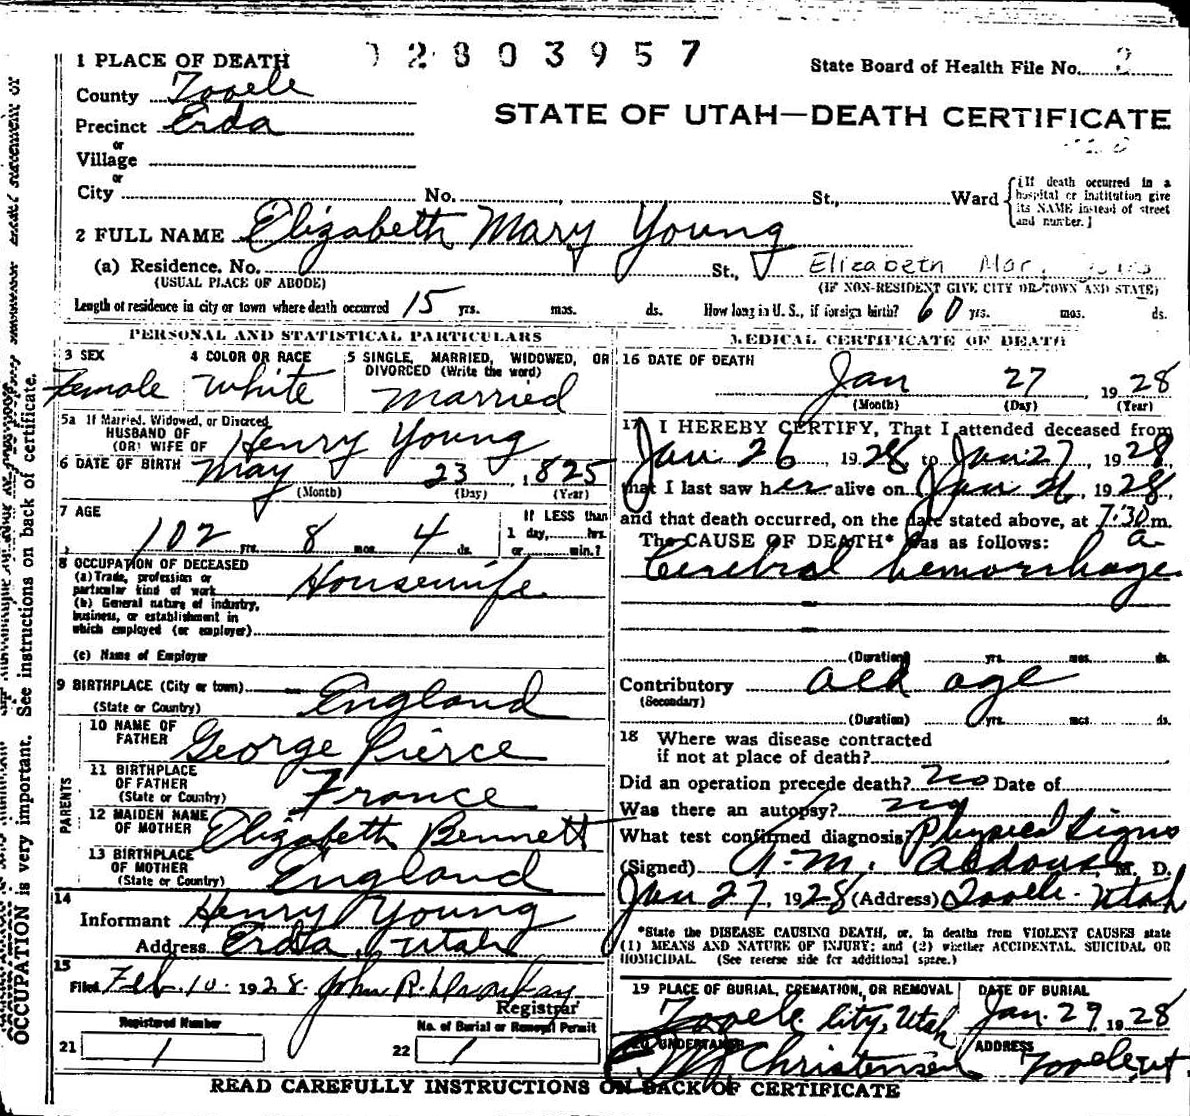 1 PLACE OF DEATH 2803957 State Board of Health File No. 2
County Tooele
Precinct Erda
STATE OF UTAH—DEATH CERTIFICATE
or
Village
or
City No. St., Ward {[If death occurred in a hospital or institution give its NAME instead of street and number.]
2 FULL NAME Elizabeth Mary Young
(a) Residence. No. St., Elizabeth
(USUAL PLACE OF ABODE) (IF NON-RESIDENT GIVE CITY OR TOWN AND STATE)
Length of residence in city or town where death occurred 15 yrs. mos. ds. How long in U. S., if foreign birth? 60 yrs. mos. ds.
PERSONAL AND STATISTICAL PARTICULARS
3 SEX 4 COLOR OR RACE 5 SINGLE, MARRIED, WIDOWED, OR
DIVORCED (Write the word)
Female White Married
5a If Married, Widowed, or Divorced
HUSBAND OF
(OR) WIFE OF Henry Young
6 DATE OF BIRTH May 23, 1825
(Month) (Day) (Year)
7 AGE If LESS than
102 yrs. 8 mos. 4 ds. 1 day, hrs.
or min.?
8 OCCUPATION OF DECEASED
(a) Trade, profession or
particular kind of work Housewife
(b) General nature of industry,
business, or establishment in
which employed (or employer)
(c) Name of Employer
9 BIRTHPLACE (City or town)
(State or Country) England
PARENTS
10 NAME OF
FATHER George Pierce
11 BIRTHPLACE
OF FATHER
(State or Country) France
12 MAIDEN NAME
OF MOTHER Elizabeth Bennett
13 BIRTHPLACE
OF MOTHER
(State or Country) England
14
Informant Henry Young
Address Erda, Utah
15
Filed Feb. 10. 1928. John R.
Registrar
Registered Number No. of Burial or Removal Permit
21 1 22 1
MEDICAL CERTIFICATE OF DEATH
16 DATE OF DEATH
Jan 27 1928
(Month) (Day) (Year)
17 I HEREBY CERTIFY, That I attended deceased from
Jan. 26, 1928 to Jan. 27, 1928,
that I last saw her alive on Jan 26, 1928,
and that death occurred, on the date stated above, at 7:30 m.
The CAUSE OF DEATH* was as follows: a
Cerebral hemorrhage
(Duration) yrs. mos. ds.
Contributory old age
(Secondary)
(Duration) yrs. mos. ds.
18 Where was disease contracted
if not at place of death?
Did an operation precede death? no Date of
Was there an autopsy? no
What test confirmed diagnosis? Physical Signs
(Signed) M. Aldous, M. D.
Jan 27, 1928 (Address) Tooele. Utah
*State the DISEASE CAUSING DEATH, or, in deaths from VIOLENT CAUSES state
(1) MEANS AND NATURE OF INJURY; and (2) whether ACCIDENTAL, SUICIDAL OR
HOMICIDAL. (See reverse side for additional space.)
19 PLACE OF BURIAL, CREMATION, OR REMOVAL DATE OF BURIAL
Tooele City, Utah Jan. 29, 1928
20 UNDERTAKER ADDRESS
Christensen Tooele, Ut
READ CAREFULLY INSTRUCTIONS ON BACK OF CERTIFICATE
OCCUPATION is very important. See instructions on back of certificate.